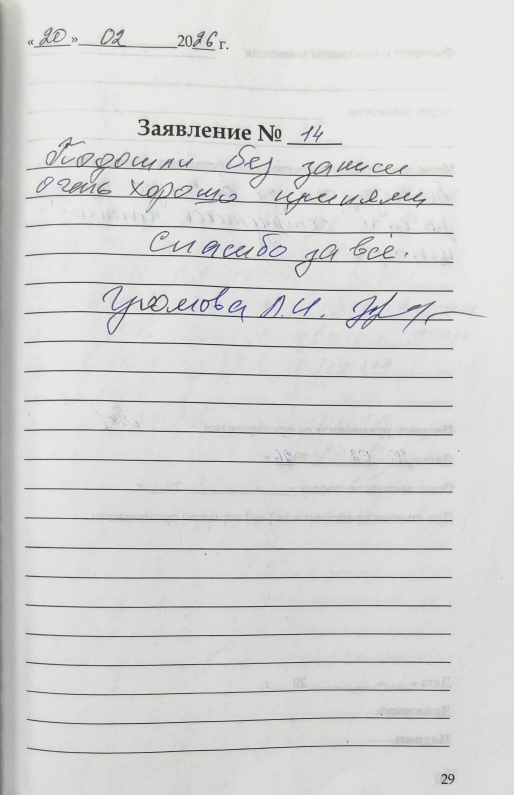 «20» 02 2026 г.
Заявление № 14
Подошли без записи
очень хорошо приняли
Спасибо за всё.
Громова Л.И.
29